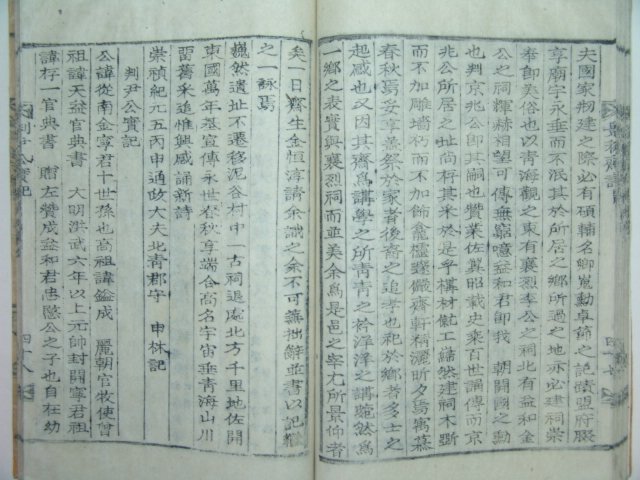 夫國家刱建之際必有碩輔名卿嵬勳卓節之詑蹟盟府腏
享廟宇永垂而不泯其於所居之鄉所過之地亦必建祠崇
奉卽美俗也以青海觀之東有襄烈李公之祠北有益和金
公之祠輝赫相望可傳無窮噫益和君卽我 朝開國之勳
也判京兆公卽其嗣也贊業佐巽昭載史乘百世誦傳而京
兆公所居之址尙存其米於是乎構材僦工繕然建祠木斲
而不加雕墻朽而不加飾龕櫨蘧儼齋軒精灑昕夕焉寓慕
春秋焉妥享善祭於家者後裔之追孝也祀於鄉者多士之
起感也又因其齋爲講學之所青青之衿洋洋之講蹌然爲
一鄉之表實與襄烈祠而並美余爲是邑之宰尤所景仰者
矣一日齋生金恒淳請余識之余不可蕪拙辭並書以記繼
之一詠焉
巍然遺址不遷移泥谷村中一古祠退處北方千里地佐開
東國萬年基宣傳永世春秋享端合高名宇宙垂青海山川
留舊采追惟興感誦新詩
崇禎紀元五丙申通政大夫北青郡守 申林記
判尹公實記
公諱從南金寧君十世孫也高祖諱鎰成 麗朝官牧使曾
祖諱天益官典書 大明洪武六年以上元帥封開寧君祖
諱存一官典書 贈左贊成益和君忠愍公之子也自在幼
判尹公實記
四十八